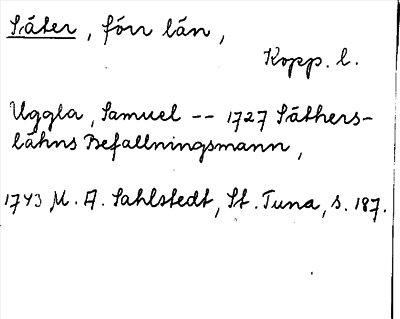 Säter, förr län,
Kopp. l.
Uggla, Samuel -- 1727 Säthers-
lähns Befallningsmann,
1743 M. A. Sahlstedt, St. Tuna, s. 187.